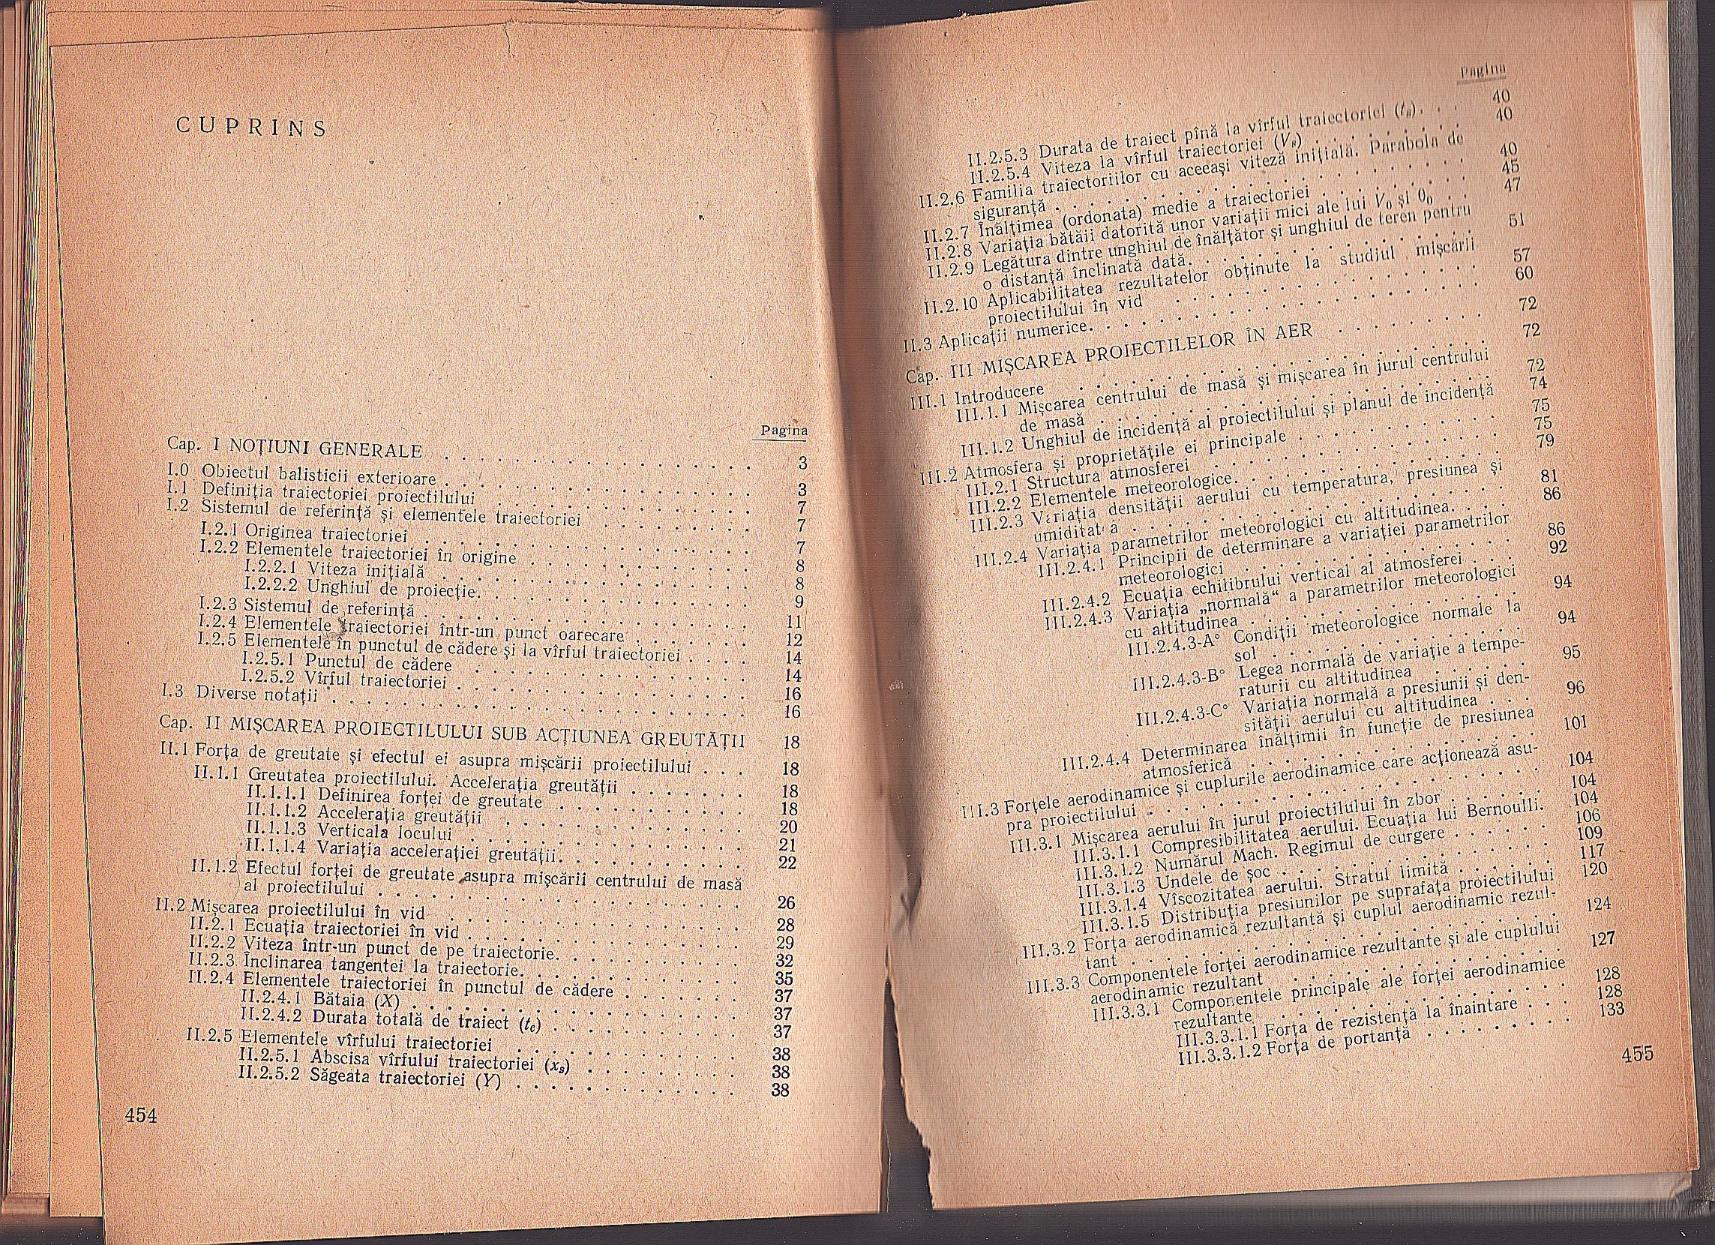 CUPRINS
Pagina
Cap. I NOȚIUNI GENERALE . . . 3
I.0 Obiectul balisticii exterioare . . . 3
I.1 Definiția traiectoriei proiectilului . . . 7
I.2 Sistemul de referință și elementele traiectoriei . . . 7
I.2.1 Originea traiectoriei . . . 7
I.2.2 Elementele traiectoriei în origine . . . 8
I.2.2.1 Viteza inițială . . . 8
I.2.2.2 Unghiul de proiecție. . . . 9
I.2.3 Sistemul de referință . . . 11
I.2.4 Elementele traiectoriei într-un punct oarecare . . . 12
I.2.5 Elementele în punctul de cădere și la vîrful traiectoriei . . . 14
I.2.5.1 Punctul de cădere . . . 14
I.2.5.2 Vîrful traiectoriei . . . 16
I.3 Diverse notații . . . 16
Cap. II MIȘCAREA PROIECTILULUI SUB ACȚIUNEA GREUTĂȚII 18
II.1 Forța de greutate și efectul ei asupra mișcării proiectilului . . . 18
II.1.1 Greutatea proiectilului. Accelerația greutății . . . 18
II.1.1.1 Definirea forței de greutate . . . 18
II.1.1.2 Accelerația greutății . . . 20
II.1.1.3 Verticala locului . . . 21
II.1.1.4 Variația accelerației greutății. . . . 22
II.1.2 Efectul forței de greutate asupra mișcării centrului de masă
al proiectilului . . . 26
II.2 Mișcarea proiectilului în vid . . . 28
II.2.1 Ecuația traiectoriei în vid . . . 29
II.2.2 Viteza într-un punct de pe traiectorie. . . . 32
II.2.3 Înclinarea tangentei la traiectorie. . . . 35
II.2.4 Elementele traiectoriei în punctul de cădere . . . 37
II.2.4.1 Bătaia (X) . . . 37
II.2.4.2 Durata totală de traiect (tc) . . . 37
II.2.5 Elementele vîrfului traiectoriei . . . 38
II.2.5.1 Abscisa vîrfului traiectoriei (xs) . . . 38
II.2.5.2 Săgeata traiectoriei (Y) . . . 38
454
Pagina
II.2.5.3 Durata de traiect pînă la vîrful traiectoriei (ts). . . 40
II.2.5.4 Viteza la vîrful traiectoriei (Vs) . . . 40
II.2.6 Familia traiectoriilor cu aceeași viteză inițială. Parabola de
siguranță . . . 40
II.2.7 Înălțimea (ordonata) medie a traiectoriei . . . 45
II.2.8 Variația bătăii datorită unor variații mici ale lui V0 și θ0 . . 47
II.2.9 Legătura dintre unghiul de înălțător și unghiul de teren pentru
o distanță înclinată dată. . . . 51
II.2.10 Aplicabilitatea rezultatelor obținute la studiul mișcării
proiectilului în vid . . . 57
II.3 Aplicații numerice. . . . 60
Cap. III MIȘCAREA PROIECTILELOR ÎN AER . . . 72
III.1 Introducere . . . 72
III.1.1 Mișcarea centrului de masă și mișcarea în jurul centrului
de masă . . . 72
III.1.2 Unghiul de incidență al proiectilului și planul de incidență 74
III.2 Atmosfera și proprietățile ei principale . . . 75
III.2.1 Structura atmosferei . . . 75
III.2.2 Elementele meteorologice. . . . 79
III.2.3 Variația densității aerului cu temperatura, presiunea și
umiditatea . . . 81
III.2.4 Variația parametrilor meteorologici cu altitudinea. . . . 86
III.2.4.1 Principii de determinare a variației parametrilor
meteorologici . . . 86
III.2.4.2 Ecuația echilibrului vertical al atmosferei . . . 92
III.2.4.3 Variația „normală“ a parametrilor meteorologici
cu altitudinea . . . 94
III.2.4.3-A° Condiții meteorologice normale la
sol . . . 94
III.2.4.3-B° Legea normală de variație a tempe-
raturii cu altitudinea . . . 95
III.2.4.3-C° Variația normală a presiunii și den-
sității aerului cu altitudinea . . 96
III.2.4.4 Determinarea înălțimii în funcție de presiunea
atmosferică . . . 101
III.3 Forțele aerodinamice și cuplurile aerodinamice care acționează asu-
pra proiectilului . . . 104
III.3.1 Mișcarea aerului în jurul proiectilului în zbor . . . 104
III.3.1.1 Compresibilitatea aerului. Ecuația lui Bernoulli. 104
III.3.1.2 Numărul Mach. Regimul de curgere . . . 106
III.3.1.3 Undele de șoc . . . 109
III.3.1.4 Vîscozitatea aerului. Stratul limită . . . 117
III.3.1.5 Distribuția presiunilor pe suprafața proiectilului 120
III.3.2 Forța aerodinamică rezultantă și cuplul aerodinamic rezul-
tant . . . 124
III.3.3 Componentele forței aerodinamice rezultante și ale cuplului
aerodinamic rezultant . . . 127
III.3.3.1 Componentele principale ale forței aerodinamice
rezultante . . . 128
III.3.3.1.1 Forța de rezistență la înaintare . . . 128
III.3.3.1.2 Forța de portanță . . . 133
455